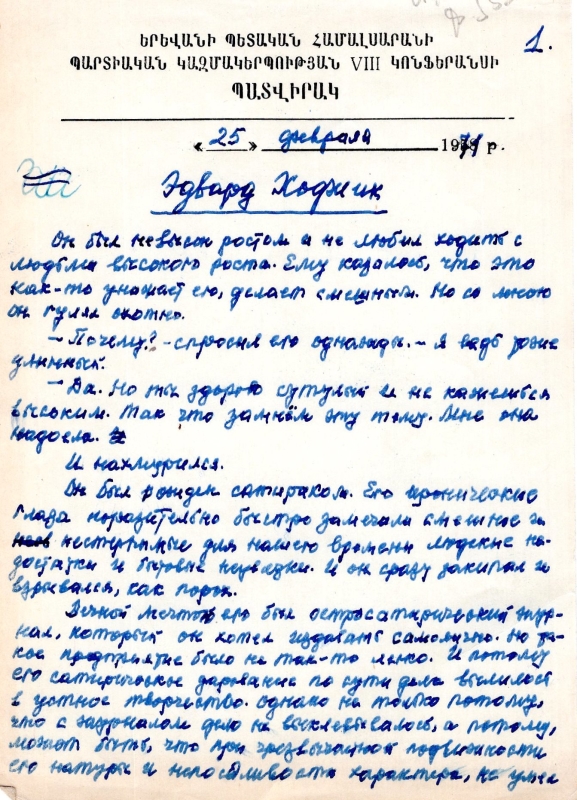 1.
ԵՐԵՎԱՆԻ ՊԵՏԱԿԱՆ ՀԱՄԱԼՍԱՐԱՆԻ
ՊԱՐՏԻԱԿԱՆ ԿԱԶՄԱԿԵՐՊՈՒԹՅԱՆ VIII ԿՈՆՖԵՐԱՆՍԻ
ՊԱՏՎԻՐԱԿ
« 25 » февраля 1971 г.
Эдвард Ходжик
Он был невысок ростом и не любил ходить с
людьми высокого роста. Ему казалось, что это
как-то унижает его, делает смешным. Но со мною
он гулял охотно.
— Почему? - спросил его однажды. - Я ведь тоже
длинный.
— Да. Но ты здорово сутулый и не кажешься
высоким. Так что замнём эту тему. Мне она
надоела.
И нахмурился.
Он был рожден сатириком. Его иронические
глаза поразительно быстро замечали смешное и
нестерпимые для нашего времени людские не-
достатки и бытовые неувязки. И он сразу закипал и
взрывался, как порох.
Вечной мечтой его был остросатирический жур-
нал, который он хотел издавать самолично. Но та-
кое предприятие было не так-то легко. И потому
его сатирическое дарование по сути дела вылилось
в устное творчество. Однако не только потому,
что с журналом дело не выклевывалось, а потому,
может быть, что при чрезвычайной подвижности
его натуры и непоседливости характера, не умел